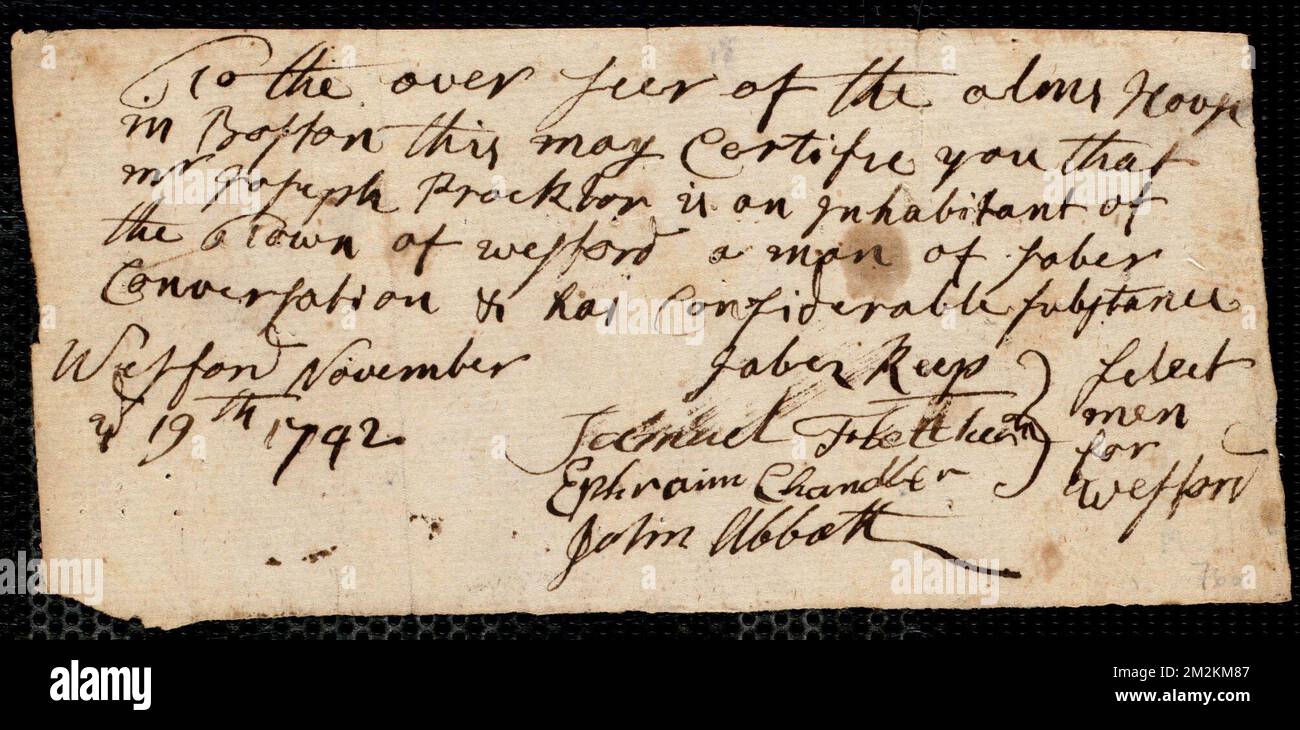 To the over seer of the alms House
in Boston this may Certifie you that
mr Joseph Prockter is an Inhabitant of
the Town of Westford a man of Saber
Conversation & has Considerable Substance
Westford November
19th 1742
Jabez Keep
Samuel Fletcher
Ephraim Chandler
John Abbott
Select
men
for
Westford
760
alamy
Image ID: 2M2KM87
www.alamy.com